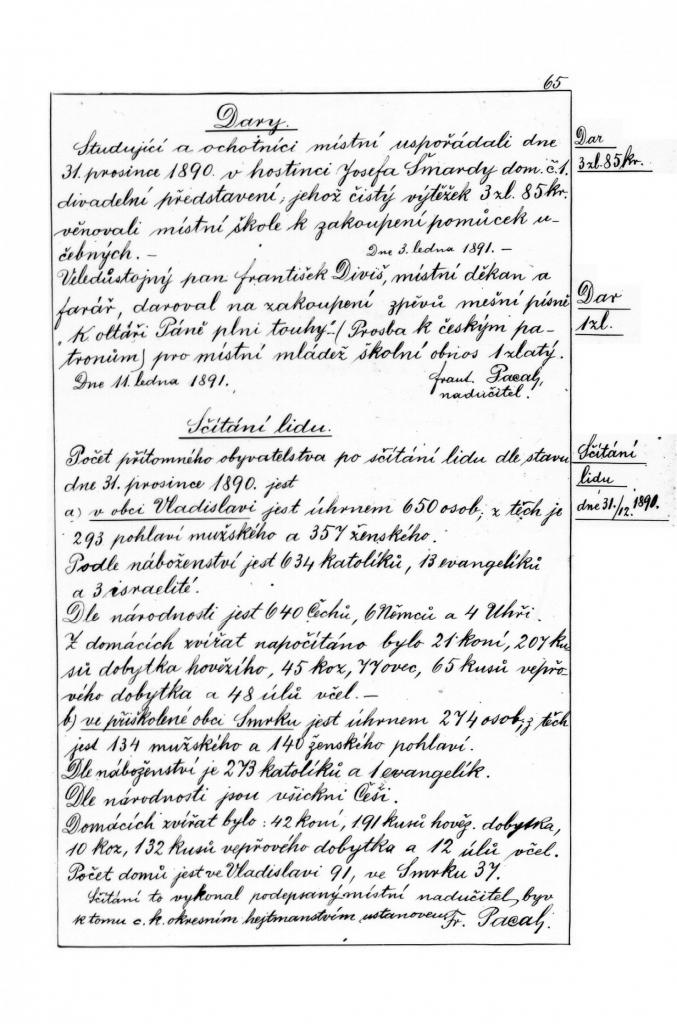 65
Dary.
Studující a ochotníci místní uspořádali dne
31. prosince 1890 v hostinci Josefa Šmardy dom. č. 1.
divadelní představení, jehož čistý výtěžek 3 zl. 85 kr.
věnovali místní škole k zakoupení pomůcek u-
čebných. —
Dne 3. ledna 1891. —
Veledůstojný pan František Diviš, místní děkan a
farář, daroval na zakoupení zpěvů mešní písně
"K oltáři Páně plni touhy" (Prosba k českým pa-
tronům) pro místní mládež školní obnos 1 zlatý.
Dne 11. ledna 1891.
frant. Pacal,
nadučitel.
Dar
3 zl. 85 kr.
Dar
1 zl.
Sčítání lidu.
Počet přítomného obyvatelstva po sčítání lidu dle stavu
dne 31. prosince 1890. jest
a) v obci Vladislavi jest úhrnem 650 osob; z těch je
293 pohlaví mužského a 357 ženského.
Podle náboženství jest 634 katolíků, 13 evangelíků
a 3 israelité.
Dle národnosti jest 640 Čechů, 6 Němců a 4 Uhři.
Z domácích zvířat napočítáno bylo 21 koní, 207 ku-
sů dobytka hovězího, 45 koz, 77 ovec, 65 kusů vepřo-
vého dobytka a 48 úlů včel. —
b) ve přiškolené obci Smrku jest úhrnem 274 osob; z těch
jest 134 mužského a 140 ženského pohlaví.
Dle náboženství je 273 katolíků a 1 evangelík.
Dle národnosti jsou všickni Češi.
Domácích zvířat bylo: 42 koní, 191 kusů hověz. dobytka,
10 koz, 132 kusů vepřového dobytka a 12 úlů včel.
Počet domů jest ve Vladislavi 91, ve Smrku 37.
Sčítání to vykonal podepsaný místní nadučitel, byv
k tomu c. k. okresním hejtmanstvím ustanoven. Fr. Pacal.
Sčítání
lidu
dne 31./12. 1890.